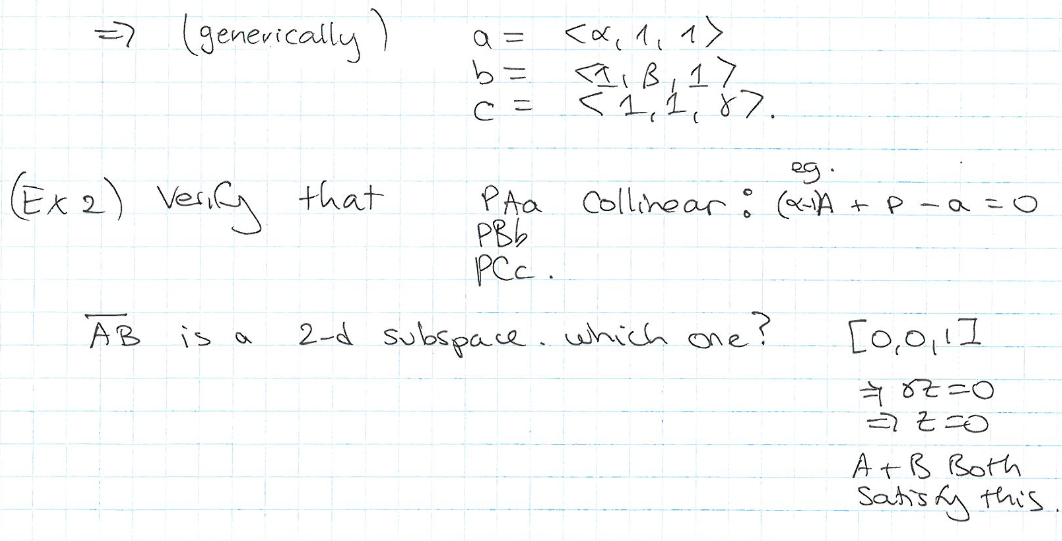 => (generically) a = <α, 1, 1>
b = <1, β, 1>
c = <1, 1, γ>.
(Ex 2) Verify that PAa collinear : eg. (α-1)A + P - a = 0
PBb
PCc.
A̅B̅ is a 2-d subspace. which one? [0,0,1]
=> γz=0
=> z=0
A + B Both
satisfy this.